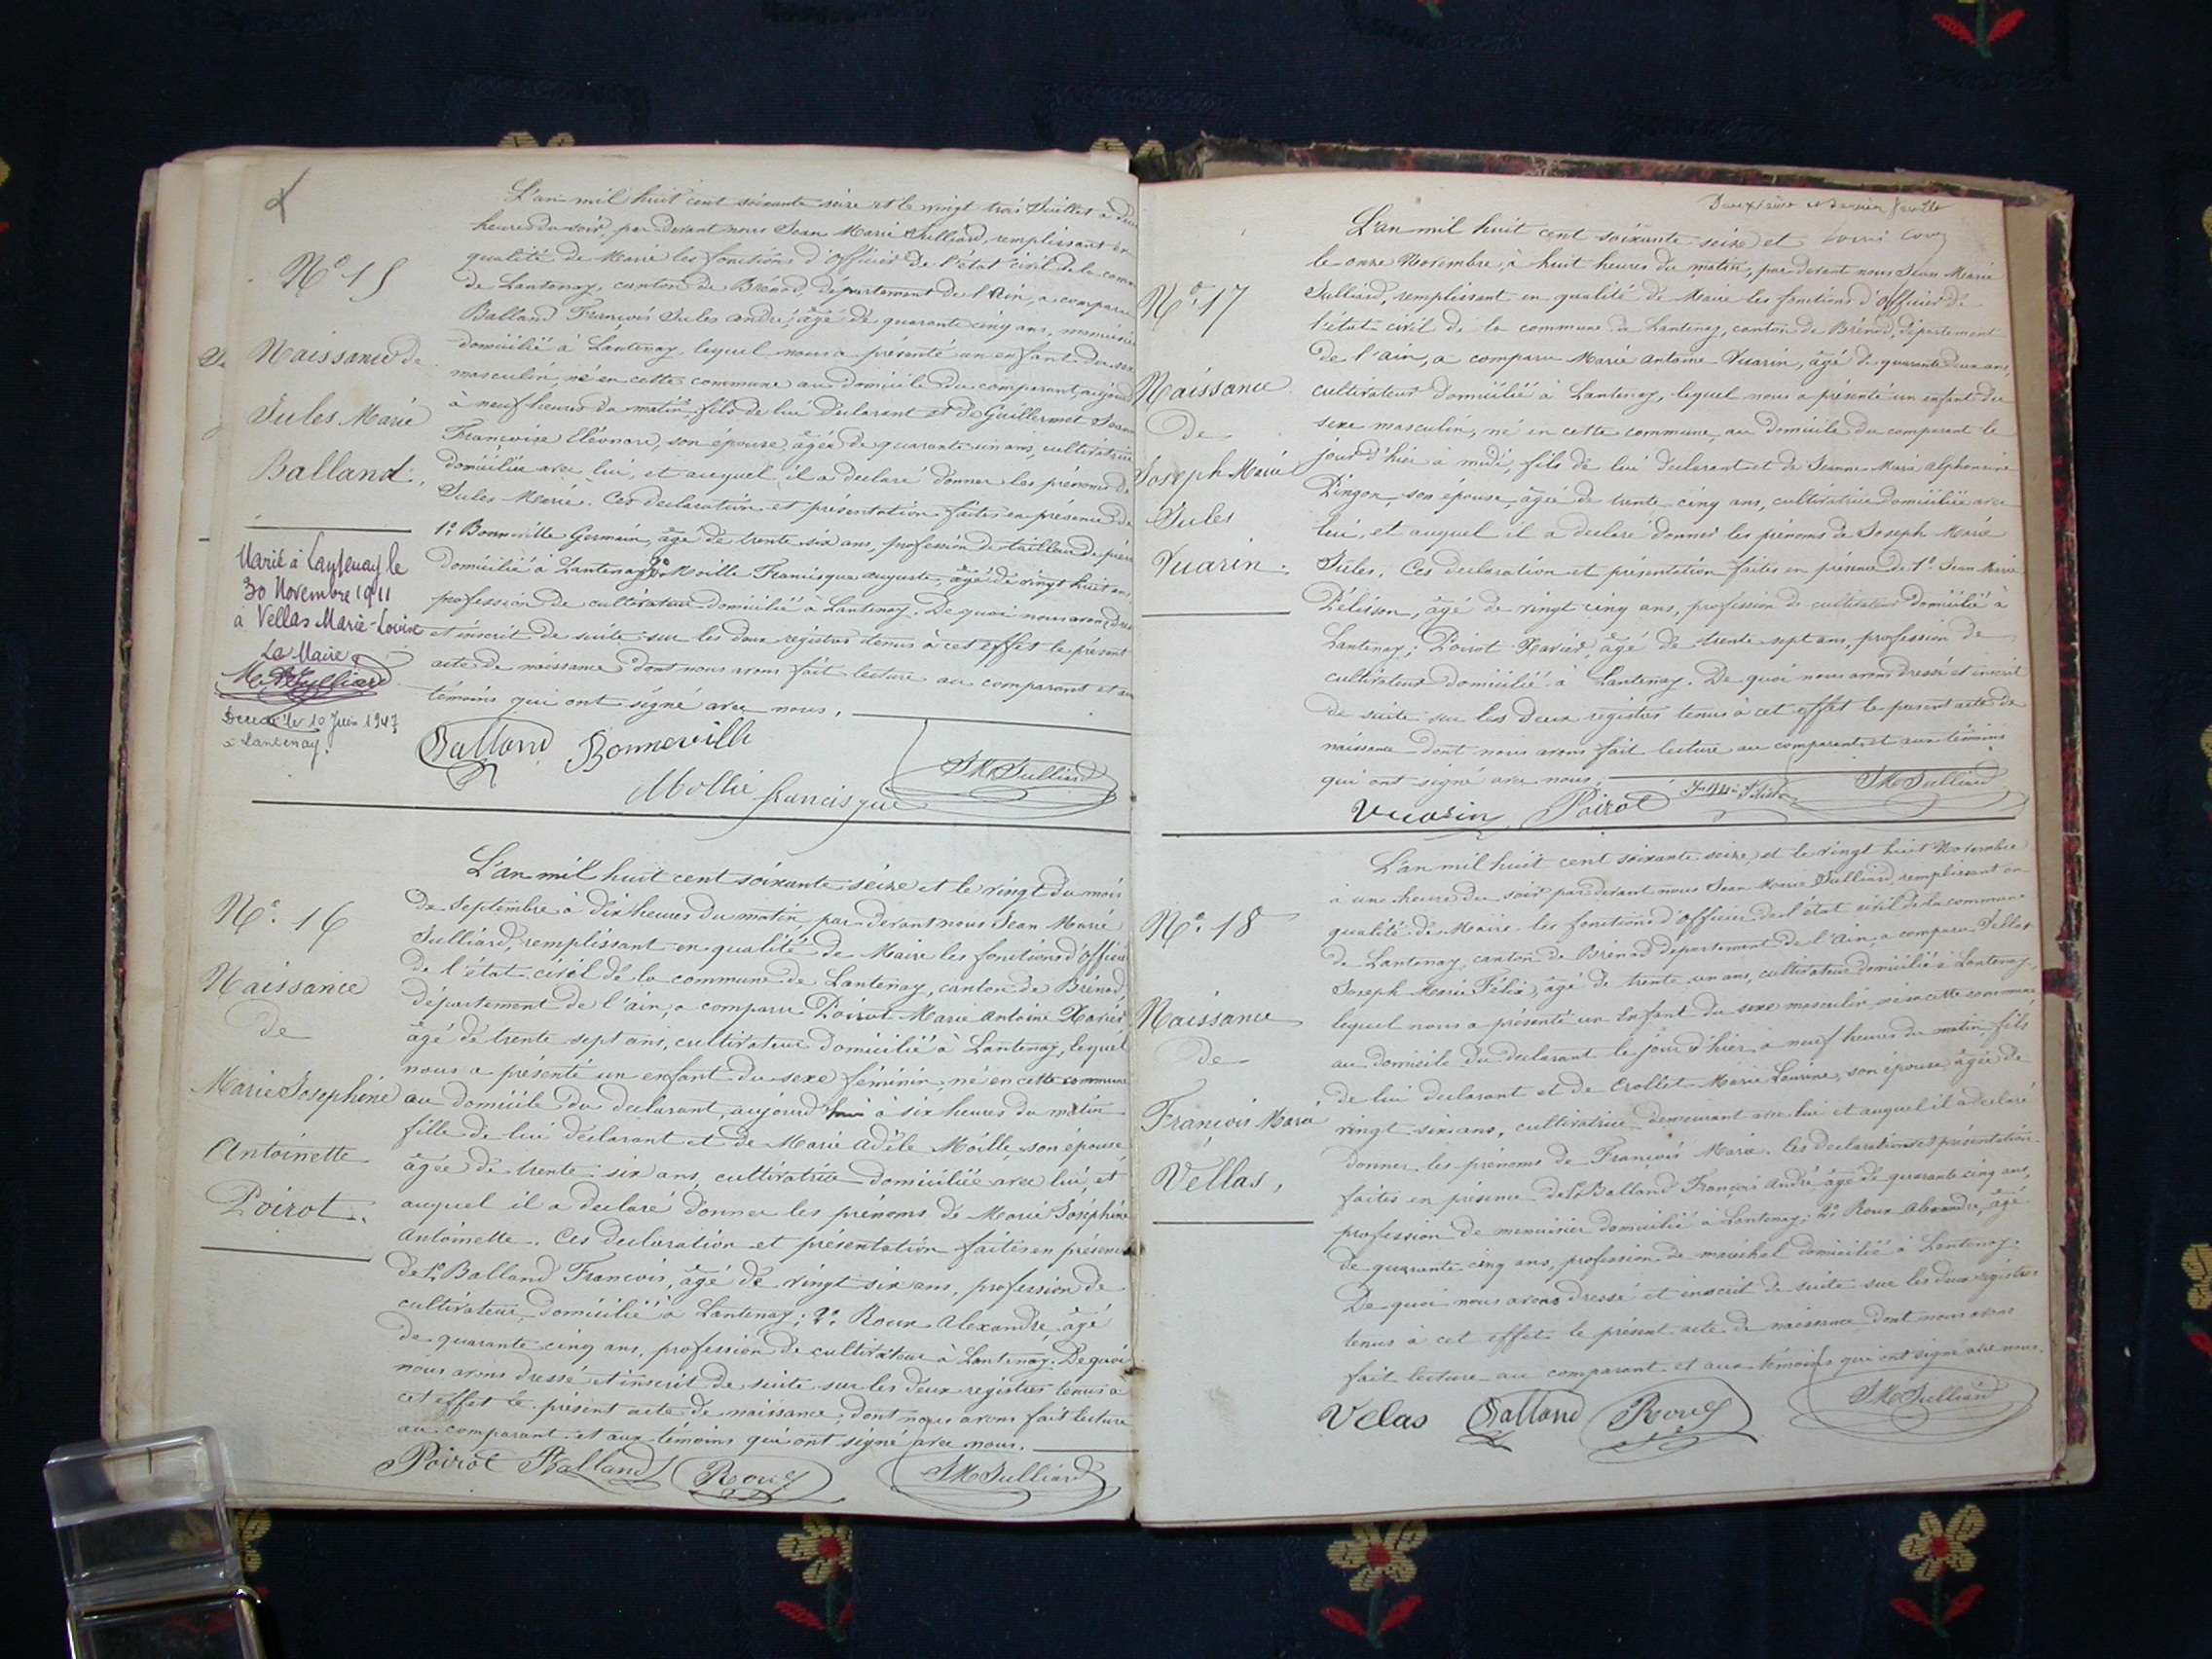 N° 15
Naissance de
Jules Marie
Balland.
Marié à Lantenay le
30 Novembre 1911
à Vellas Marie-Louise
Le Maire
Décédé le 10 Juin 1947
à Lantenay.
L'an mil huit cent soixante seize et le vingt trois Juillet à
heures du soir, par devant nous Jean Marie Julliard, remplissant en
qualité de Maire les fonctions d'officier de l'état civil de la
de Lantenay, canton de Brénod, département de l'Ain, a comparu
Balland François Jules André, âgé de quarante cinq ans, menuisier
domicilié à Lantenay, lequel nous a présenté un enfant du sexe
masculin, né en cette commune au domicile du comparant,
à neuf heures du matin fils de lui déclarant et de Guillermet
Françoise Eléonore, son épouse, âgée de quarante un ans, cultivatrice
domiciliée avec lui, et auquel il a déclaré donner les prénoms de
Jules Marie. Ces déclaration et présentation faites en présence de
1° Bonneville Germain, âgé de trente six ans, profession de tailleur de pierre
domicilié à Lantenay 2° Moille Francisque Auguste, âgé de vingt huit ans
profession de cultivateur domicilié à Lantenay. De quoi nous avons
et inscrit de suite sur les deux registres tenus à cet effet le présent
acte de naissance dont nous avons fait lecture au comparant et aux
témoins qui ont signé avec nous.
Balland Bonneville
Mollie francisque JM Julliard
N° 16
Naissance
de
Marie Joséphine
Antoinette
Poirot.
L'an mil huit cent soixante seize et le vingt du mois
de Septembre à dix heures du matin, par devant nous Jean Marie
Julliard, remplissant en qualité de Maire les fonctions d'officier
de l'état civil de la commune de Lantenay, canton de Brénod,
département de l'ain, a comparu Poirot Marie Antoine Xavier
âgé de trente sept ans, cultivateur domicilié à Lantenay, lequel
nous a présenté un enfant du sexe féminin, né en cette commune
au domicile du déclarant, aujourd'hui à six heures du matin
fille de lui déclarant et de Marie Adèle Moille son épouse
âgée de trente six ans, cultivatrice domiciliée avec lui, et
auquel il a déclaré donner les prénoms de Marie Joséphine
Antoinette. Ces déclaration et présentation faites en présence
de 1° Balland François, âgé de vingt six ans, profession de
cultivateur, domicilié à Lantenay; 2° Roux Alexandre, âgé
de quarante cinq ans, profession de cultivateur à Lantenay. De quoi
nous avons dressé et inscrit de suite sur les deux registres tenus à
cet effet le présent acte de naissance, dont nous avons fait lecture
au comparant et aux témoins qui ont signé avec nous.
Poirot Balland Roux JM Julliard
Deuxième et dernier feuillet
N° 17
Naissance
de
Joseph Marie
Jules
Vuarin.
L'an mil huit cent soixante seize et
le onze Novembre, à huit heures du matin, par devant nous Jean Marie
Julliard, remplissant en qualité de Maire les fonctions d'officier de
l'état civil de la commune de Lantenay, canton de Brénod, département
de l'ain, a comparu Marie Antoine Vuarin, âgé de quarante deux ans,
cultivateur domicilié à Lantenay, lequel nous a présenté un enfant du
sexe masculin, né en cette commune, au domicile du comparant le
jour d'hier à midi, fils de lui déclarant et de Jeanne Marie Alphonsine
Pingon, son épouse, âgée de trente cinq ans, cultivatrice domiciliée avec
lui, et auquel il a déclaré donner les prénoms de Joseph Marie
Jules. Ces déclaration et présentation faites en présence de 1° Jean Marie
Pélisson, âgé de vingt cinq ans, profession de cultivateur domicilié à
Lantenay; Poirot Xavier, âgé de trente sept ans, profession de
cultivateur domicilié à Lantenay. De quoi nous avons dressé et inscrit
de suite sur les deux registres tenus à cet effet le présent acte de
naissance dont nous avons fait lecture au comparant et aux témoins
qui ont signé avec nous.
Vuarin Poirot JM Julliard
N° 18
Naissance
de
François Marie
Vellas,
L'an mil huit cent soixante seize, et le vingt huit Novembre
à une heure du soir par devant nous Jean Marie Julliard, remplissant en
qualité de Maire les fonctions d'officier de l'état civil de la commune
de Lantenay, canton de Brénod département de l'Ain, a comparu Vellas
Joseph Marie Félix, âgé de trente un ans, cultivateur domicilié à Lantenay,
lequel nous a présenté un Enfant du sexe masculin né en cette commune
au domicile du déclarant le jour d'hier à neuf heures du matin fils
de lui déclarant et de Crollet Marie Laurine, son épouse âgée de
vingt six ans, cultivatrice demeurant avec lui et auquel il a déclaré
donner les prénoms de François Marie. Ces déclaration et présentation
faites en présence de 1° Balland François André âgé de quarante cinq ans,
profession de menuisier domicilié à Lantenay; 2° Roux Alexandre, âgé
de quarante cinq ans, profession de maréchal domicilié à Lantenay.
De quoi nous avons dressé et inscrit de suite sur les deux registres
tenus à cet effet le présent acte de naissance dont nous avons
fait lecture au comparant et aux témoins qui ont signé avec nous.
Velas Balland Roux JM Julliard